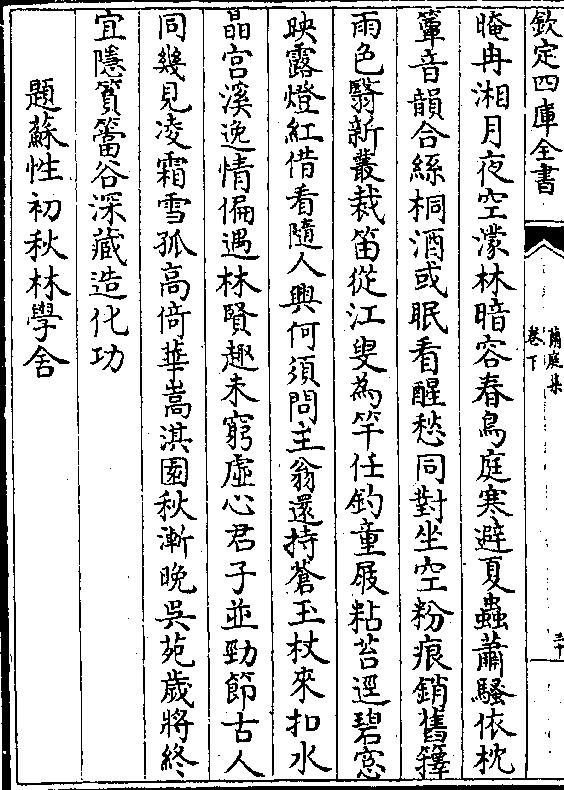 欽定四庫全書
蘭庭集
卷下
三十
晻冉湘月夜空濛林暗容春鳥庭寒避夏蟲蕭騷依枕
簟音韻合絲桐酒或眠看醒愁同對坐空粉痕銷舊籜
雨色翳新叢裁笛從江叟為竿任釣童屐粘苔逕碧窓
映露燈紅借看隨人興何須問主翁還持蒼玉杖來扣水
晶宫溪逸情偏遇林賢趣未窮虛心君子並勁節古人
同幾見凌霜雪孤高倚華嵩淇園秋漸晚吳苑歲將終
宜隱篔簹谷深藏造化功
題蘇性初秋林學舍